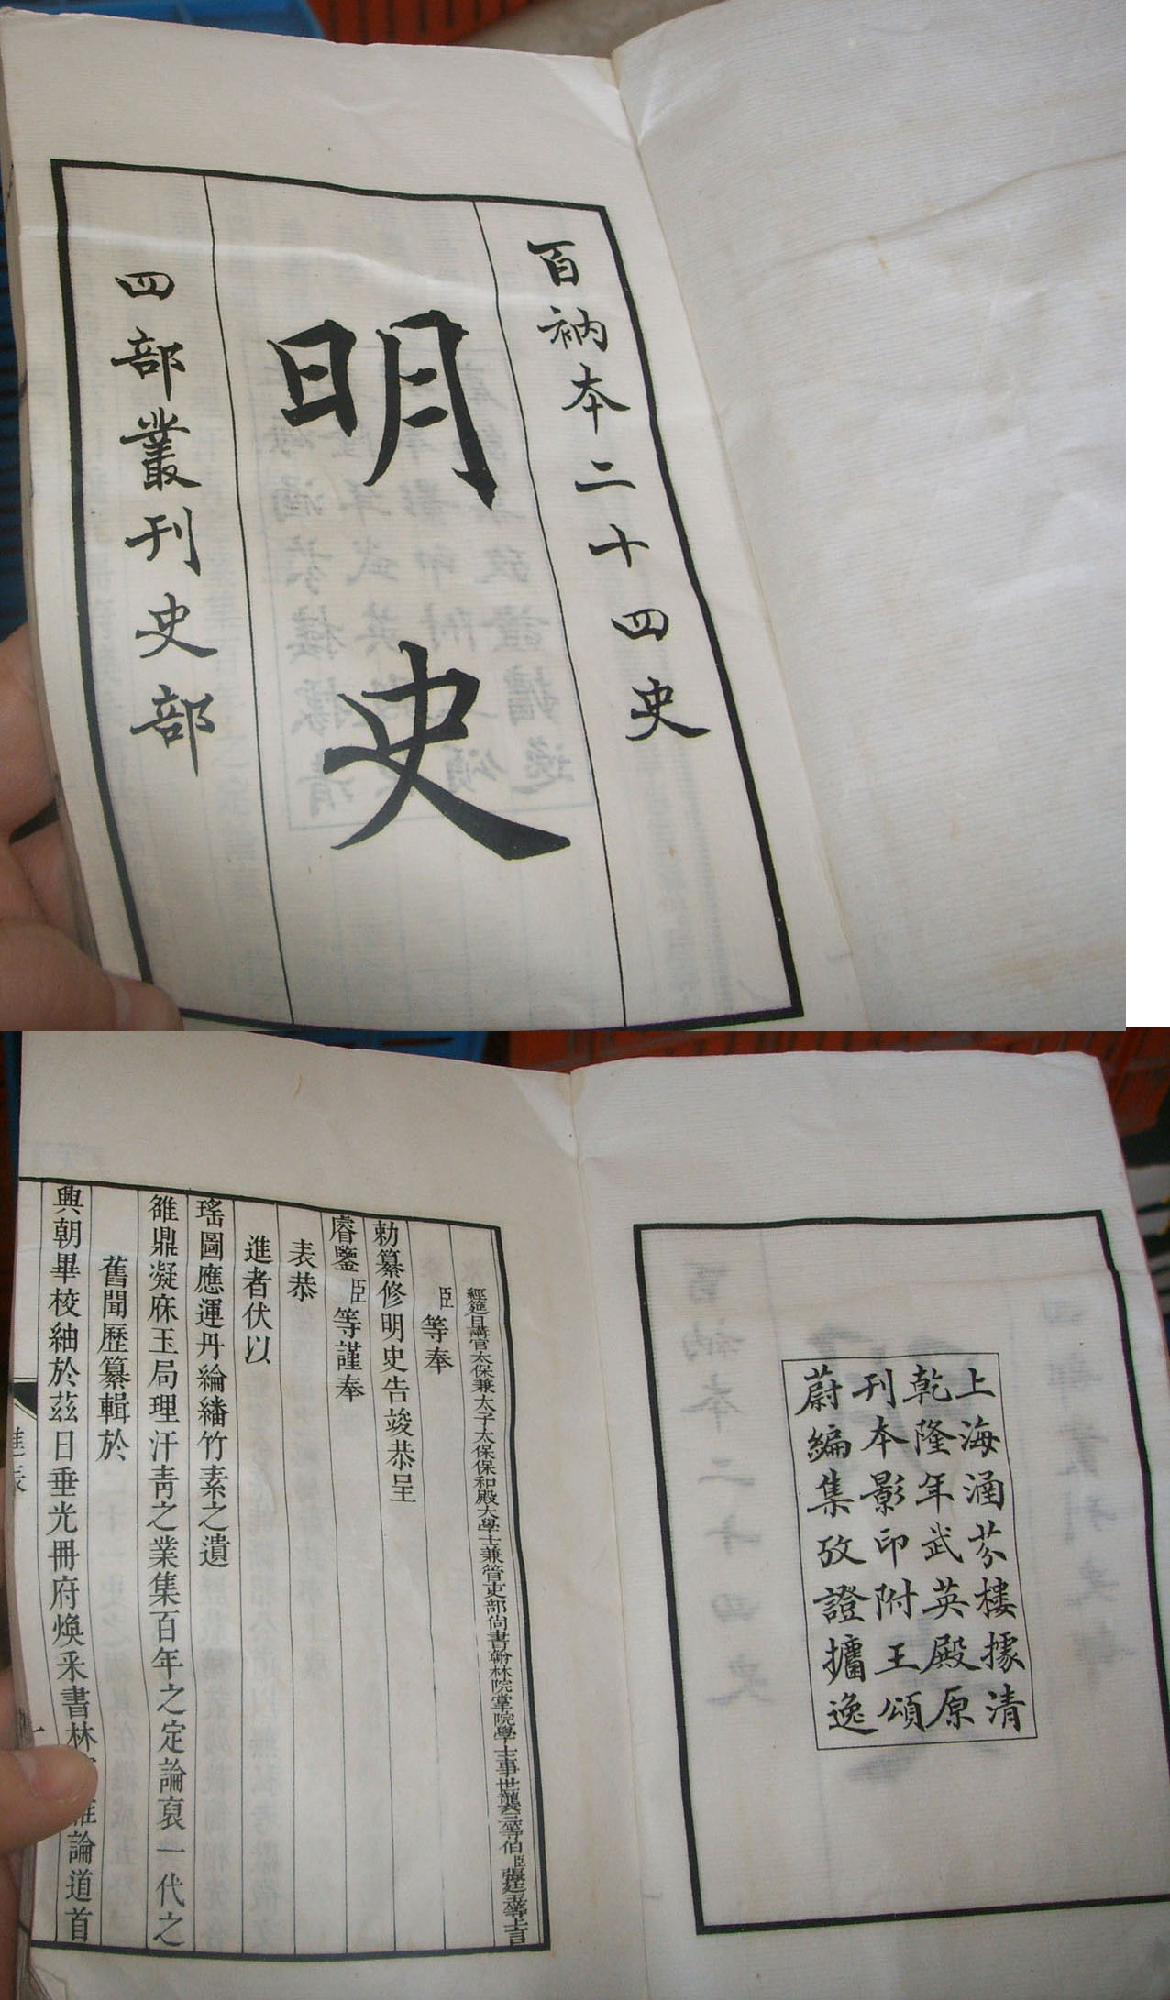 百衲本二十四史
明史
四部叢刊史部
上海涵芬樓據清
乾隆年武英殿原
刊本影印附王頌
蔚編集攷證攟逸
經筵日講官太保兼太子太保保和殿大學士兼管吏部尚書翰林院掌院學士事世襲三等伯臣張廷玉等上言
臣等奉
勅纂修明史告竣恭呈
睿鑒臣等謹奉
表恭
進者伏以
瑤圖應運丹綸繙竹素之遺
雒鼎凝庥玉局理汗靑之業集百年之定論裒一代之
舊聞歷纂輯於
興朝畢校紬於茲日垂光冊府煥釆書林
論道首
進表
一